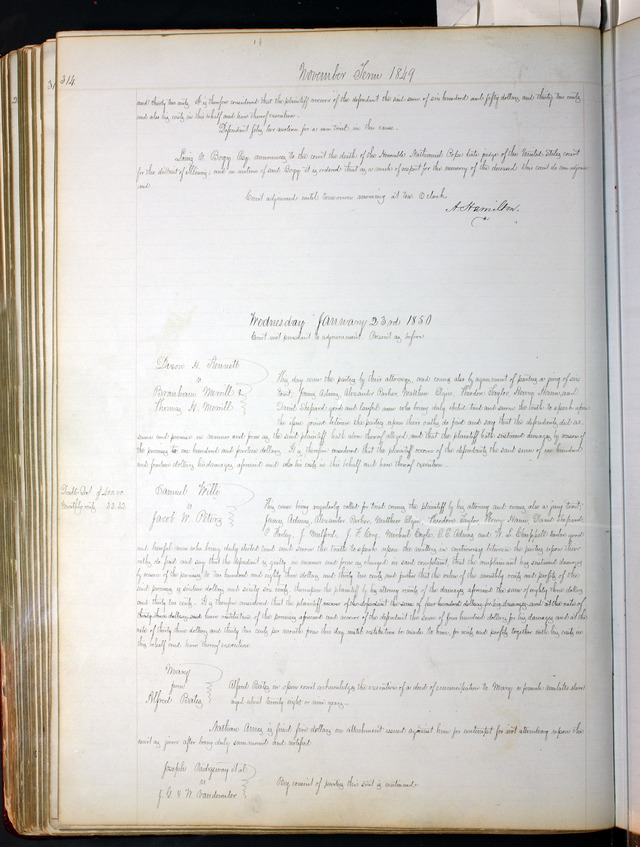 314
November Term 1849
and thirty two cents. It is therefore considered that the plaintiff recover of the defendant the said sum of six hundred and fifty dollars and thirty two cents
and also his costs in this behalf and have thereof execution.
Defendant files his motion for a new trial in this case.
Louis V. Bogy Esq. announces to the court the death of the Honorable Nathaniel Pope late judge of the United States court
for the district of Illinois, and on motion of said Bogy it is ordered that as a mark of respect for the memory of the deceased this court do now adjourn
Court adjourned until tomorrow morning at ten O'clock
A. Hamilton.
Wednesday January 23rd 1850
Court met pursuant to adjournment. Present as before
vs
Branham Merrill &
Thomas H. Merrill
This day come the parties by their attorneys, and comes also by agreement of parties a jury of six
Jurors, Adams, Alexander Barker, Matthew Elgin, Theodore Taylor, Henry Hann, and
David Shepard good and lawful men who being duly elected tried and sworn the truth to speak upon
the issue joined between the parties upon their oaths, do find and say that the defendants did as-
sume and promise in manner and form as the said plaintiff hath above thereof alleged, and that the plaintiff hath sustained damages by reason of
the premises to one hundred and fourteen dollars. It is therefore considered that the plaintiff recover of the defendants the said sum of one hundred
and fourteen dollars his damages aforesaid and also his costs in this behalf and have thereof execution.
Double Dam. $400.00
Monthly rents 33.20
Samuel Willi
vs
Jacob W. Peters
This cause being regularly called for trial comes the plaintiff by his attorney and comes also a jury towit;
Adams, Alexander Barker, Matthew Elgin, Theodore Taylor, Henry Hann, David Shepard,
J. Mulford, J. F. Cony, Adams and W. S. Campbell twelve good
and lawful men who being duly elected tried and sworn the truth to speak upon the matters in controversy between the parties upon their
oaths, do find and say that the defendant is guilty in manner and form as charged in said complaint, that the complainant has sustained damages
by reason of the premises to two hundred and eighty three dollars and thirty two cents, and further that the value of the monthly rents and profits of the
said premises is sixteen dollars and sixty six cents; thereupon the plaintiff by his attorney remits of the damages aforesaid the sum of eighty three dollars
and thirty two cents. It is therefore considered that the plaintiff recover of the defendant the sum of four hundred dollars for his damages and at the rate of
thirty three dollars and have restitution of the premises aforesaid and recover of the defendant the sum of four hundred dollars for his damages, and at the
rate of thirty three dollars and thirty two cents per month from this day until restitution be made to him, for rents and profits, together with his costs in
this behalf and have thereof execution
Mary
from
Alfred Bates
Alfred Bates in open court acknowledges the execution of a deed of emancipation to Mary a female mulatto slave
aged about twenty eight or nine years.
Nathan Ames is fined five dollars on attachment issued against him for contempt for not attending upon this
court as juror after being duly summoned and notified
Joseph Ridgeway et al
vs
J. G. & W. Vandewater
By consent of parties this suit is continued.